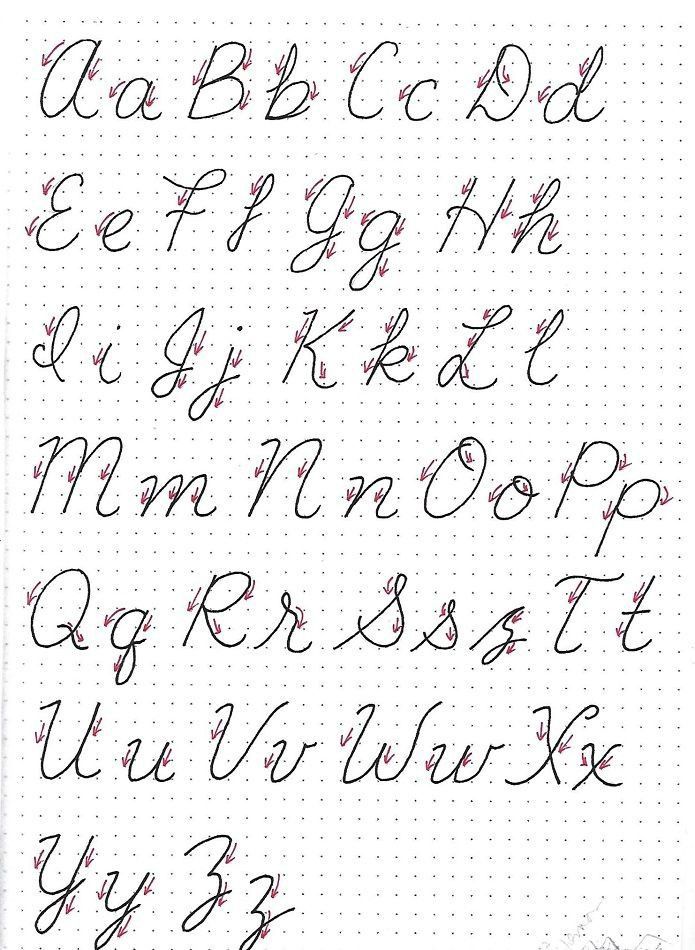 Aa Bb Cc Dd
Ee Ff Gg Hh
Ii Jj Kk Ll
Mm Nn Oo Pp
Qq Rr Sss Tt
Uu Vv Ww Xx
Yy Zz